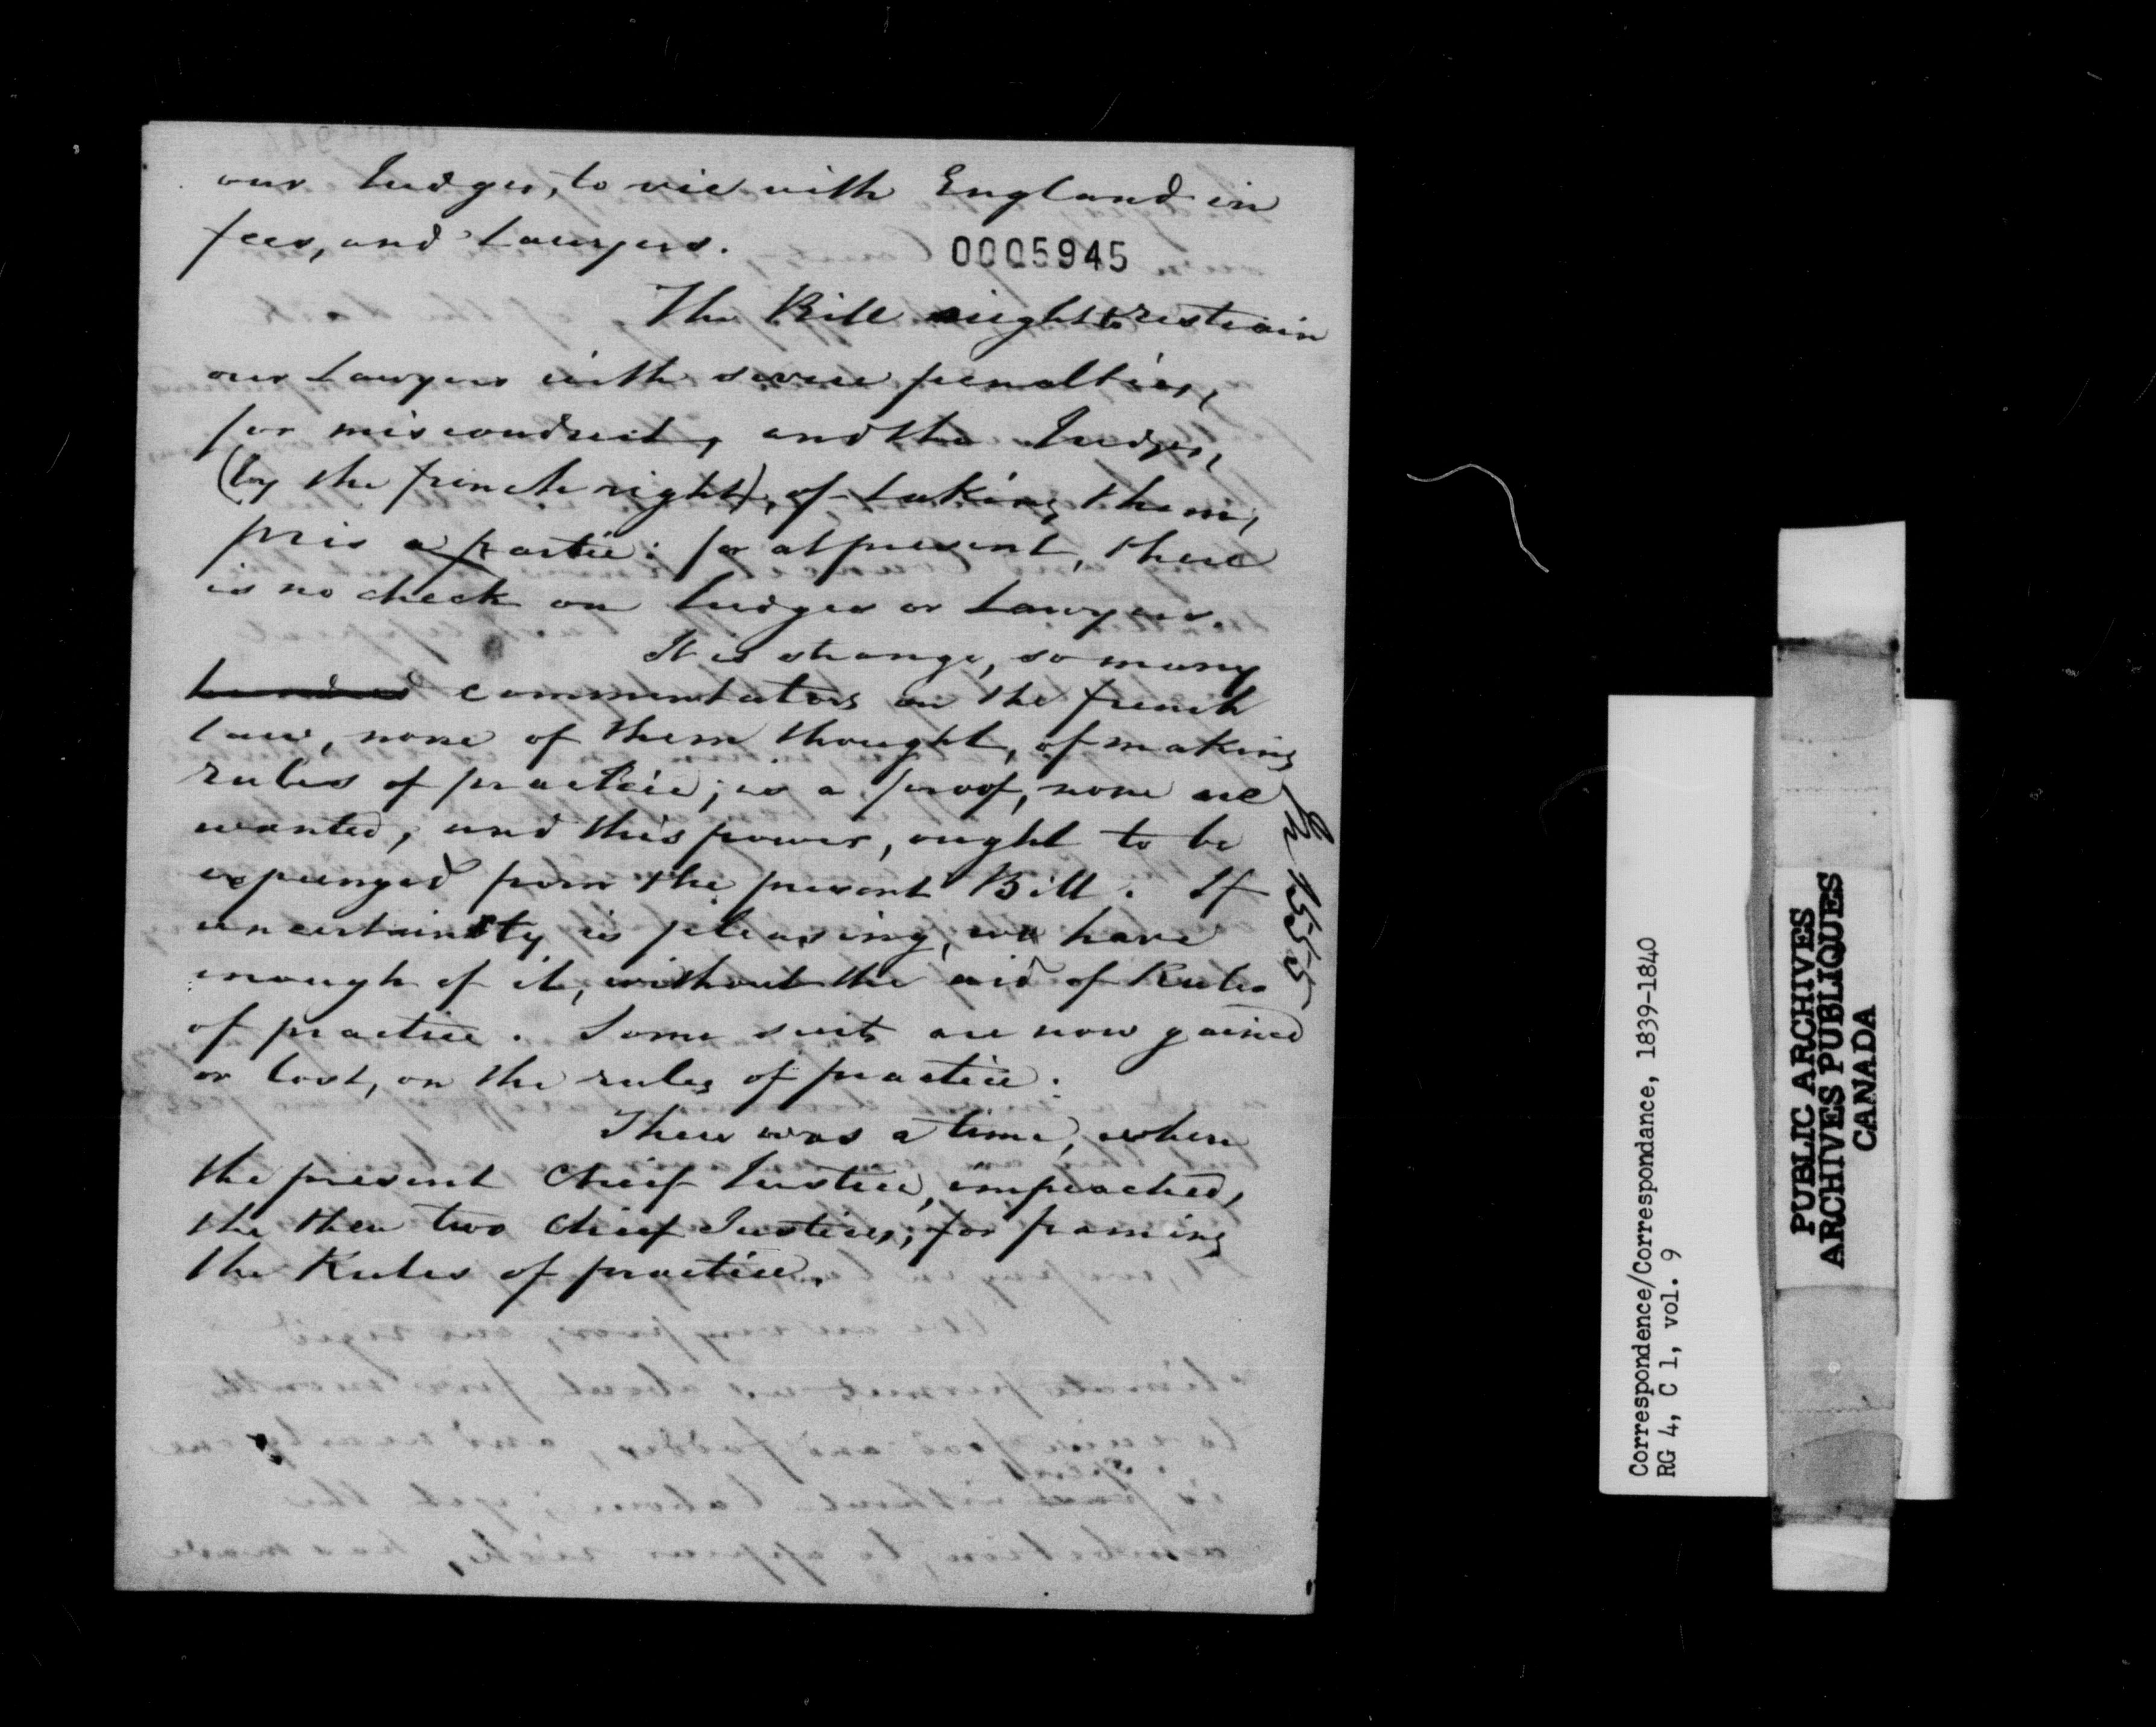 our Judges, to vie with England in
fees, and Lawyers.
0005945
The Bill ought to restrain
our Lawyers with severe penalties,
for misconduct, and the Judges,
(by the french right), of taking them,
pris a partie: for at present, there
is no check on Judges or Lawyers.
It is strange, so many
hundred commentators on the french
law, none of them thought, of making
rules of practice; is a proof, none are
wanted, and this power, ought to be
expunged from the present Bill. If
uncertainty is pleasing, we have
enough of it, without the aid of Rules
of practice. Some suits are now gained
or lost, on the rules of practice.
There was a time, when
the present Chief Justice, impeached,
the then two Chief Justices, for framing
the Rules of practice.
1555
Correspondence/Correspondance, 1839-1840
RG 4, C 1, vol. 9
PUBLIC ARCHIVES
ARCHIVES PUBLIQUES
CANADA